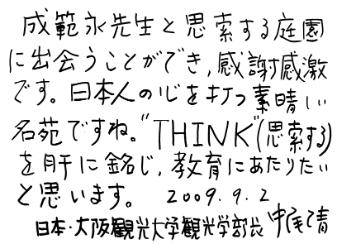 成範永先生と思索する庭園
に出会うことができ,感謝感激
です。日本人の心を打つ素晴しい
名苑ですね。“THINK”(思索する)
を肝に銘じ,教育にあたりたい
と思います。 2009.9.2
日本・大阪観光大学観光学部長 中尾清